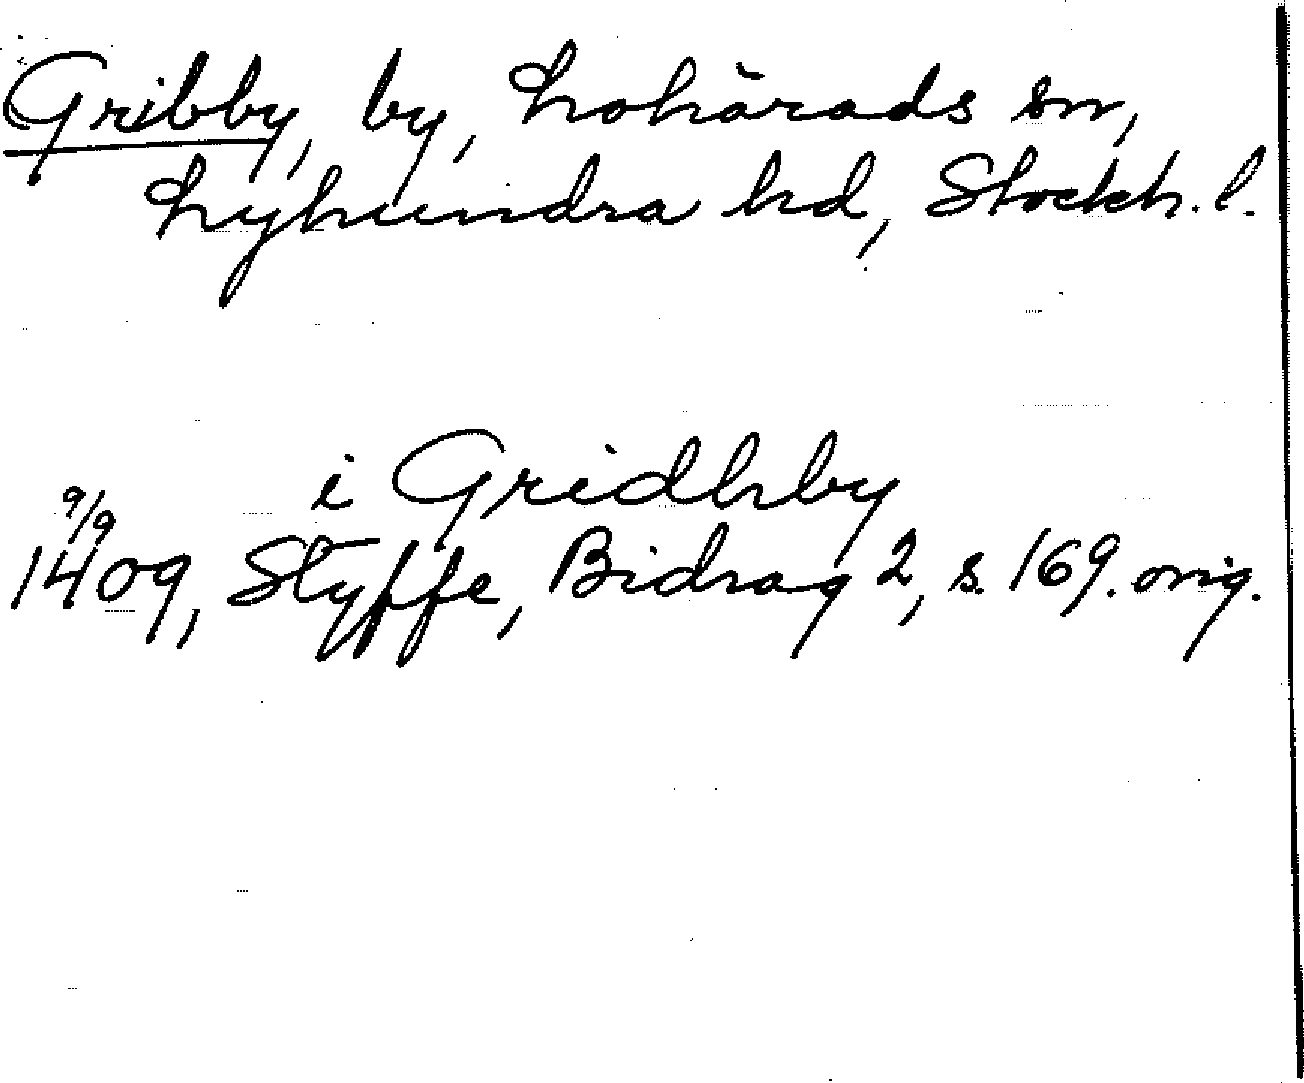 Gribby, by, Lohärads sn,
Lyhundra hd, Stockh. l.
i Gridhby
9/9
1409, Styffe, Bidrag 2, s. 169. orig.